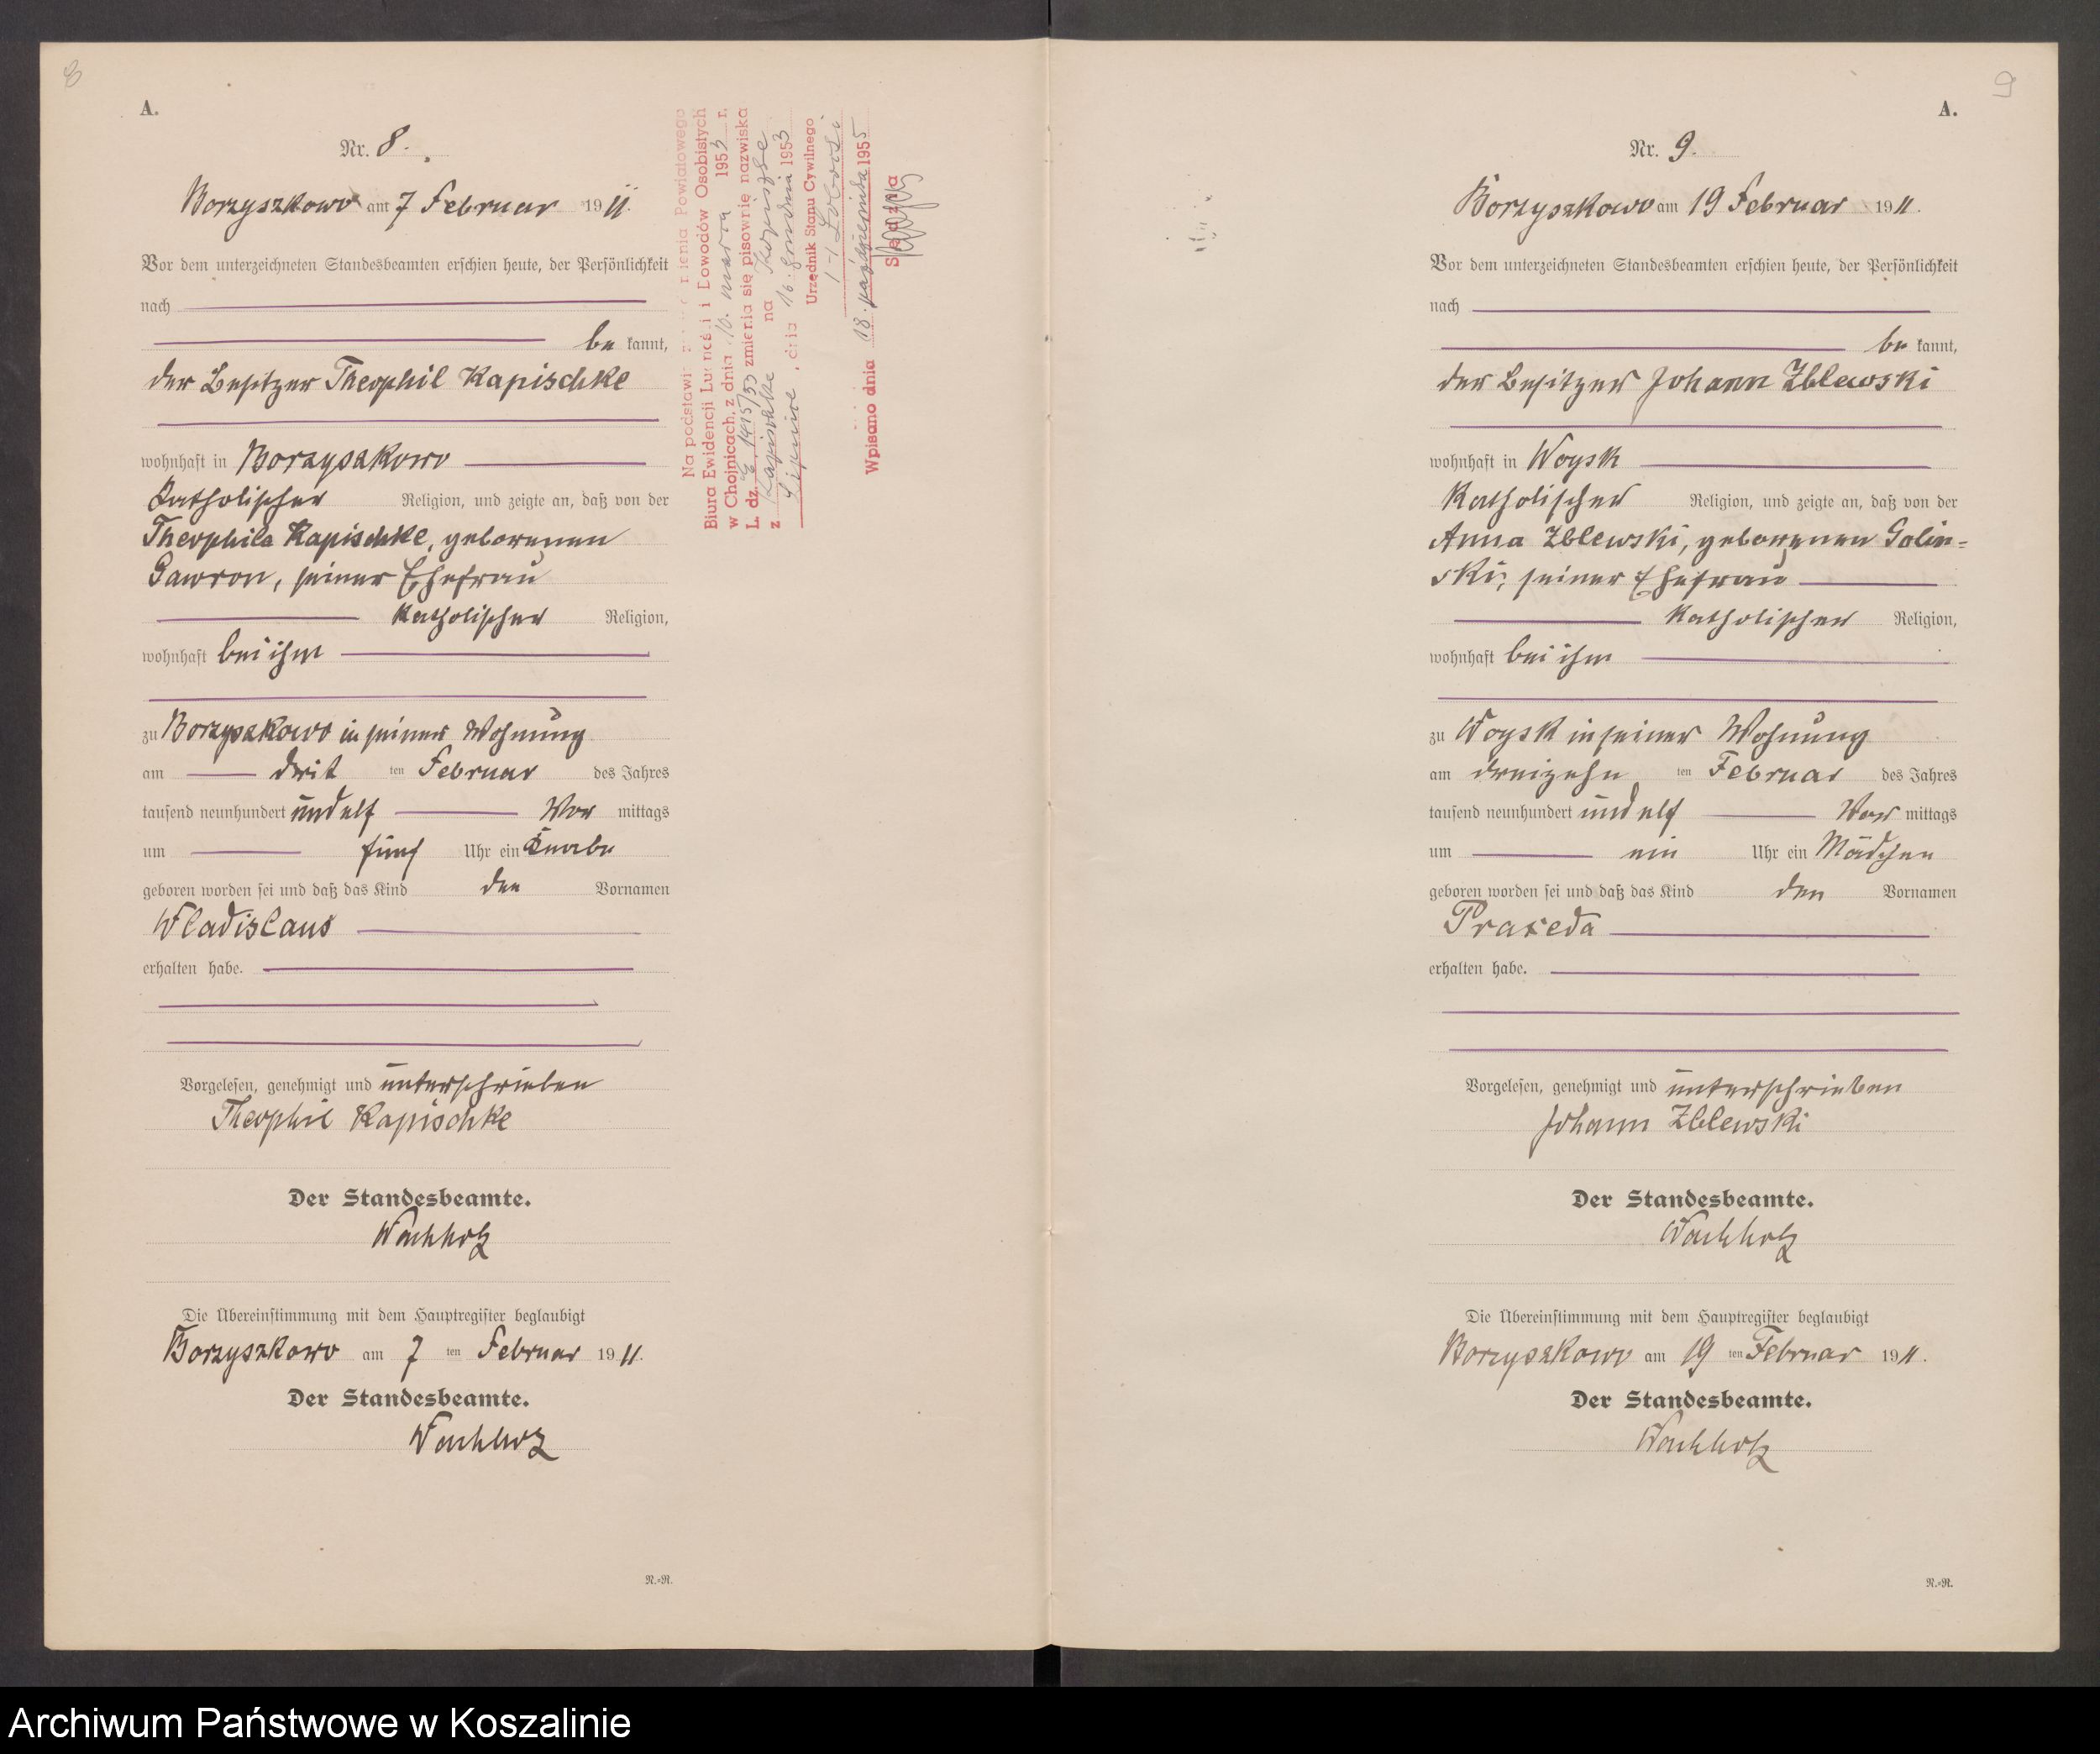 8
A.
Nr. 8.
Borzyszkowo am 7 Februar 1911.
Vor dem unterzeichneten Standesbeamten erschien heute, der Persönlichkeit
nach
be kannt,
der Besitzer Theophil Kapischke
wohnhaft in Borzyszkowo
Katholischer Religion, und zeigte an, daß von der
Theophila Kapischke, geborenen
Gawron, seiner Ehefrau
Katholischer Religion,
wohnhaft bei ihm
zu Borzyszkowo in seiner Wohnung
am drit ten Februar des Jahres
tausend neunhundert und elf Vor mittags
um fünf Uhr ein Knabe
geboren worden sei und daß das Kind den Vornamen
Wladislaus
erhalten habe.
Vorgelesen, genehmigt und unterschrieben
Theophil Kapischke
Der Standesbeamte.
Wachholz
Die Übereinstimmung mit dem Hauptregister beglaubigt
Borzyszkowo am 7 ten Februar 1911.
Der Standesbeamte.
Wachholz
N.=N.
Na podstawie Powiatowego
Biura Ewidencji Ludności i Dowodów Osobistych
w Chojnicach, z dnia 10. marca 1953 r.
L. dz. 1415/53 zmienia się pisownię nazwiska
z Kapischke na Kopiszke
Lipnice, dnia 16. grudnia 1953
Urzędnik Stanu Cywilnego
Wpisano dnia 18. października 1955
9
A.
Nr. 9.
Borzyszkowo am 19 Februar 1911.
Vor dem unterzeichneten Standesbeamten erschien heute, der Persönlichkeit
nach
be kannt,
der Besitzer Johann Zblewski
wohnhaft in Woysk
Katholischer Religion, und zeigte an, daß von der
Anna Zblewski, geborenen Golin=
ski, seiner Ehefrau
Katholischer Religion,
wohnhaft bei ihm
zu Woysk in seiner Wohnung
am dreizehn ten Februar des Jahres
tausend neunhundert und elf Vor mittags
um ein Uhr ein Mädchen
geboren worden sei und daß das Kind den Vornamen
Praxeda
erhalten habe.
Vorgelesen, genehmigt und unterschrieben
Johann Zblewski
Der Standesbeamte.
Wachholz
Die Übereinstimmung mit dem Hauptregister beglaubigt
Borzyszkowo am 19 ten Februar 1911.
Der Standesbeamte.
Wachholz
N.=N.
Archiwum Państwowe w Koszalinie